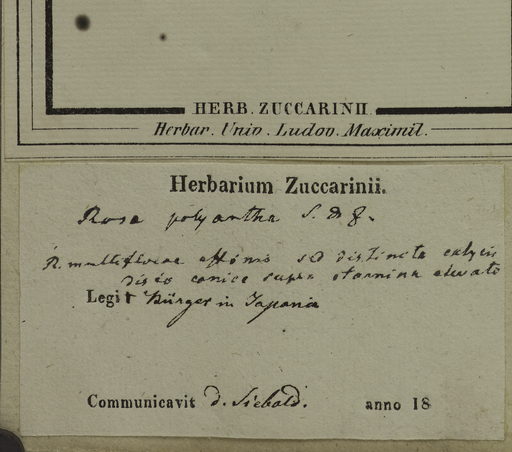 HERB. ZUCCARINII.
Herbar. Univ. Ludov. Maximil.
Herbarium Zuccarinii.
Rosa polyantha S. & Z.
R. multiflorae affinis sed distincta calycis
disco conico supra stamina elevato
Legit Bürger in Japonia
Communicavit d. Siebold. anno 18